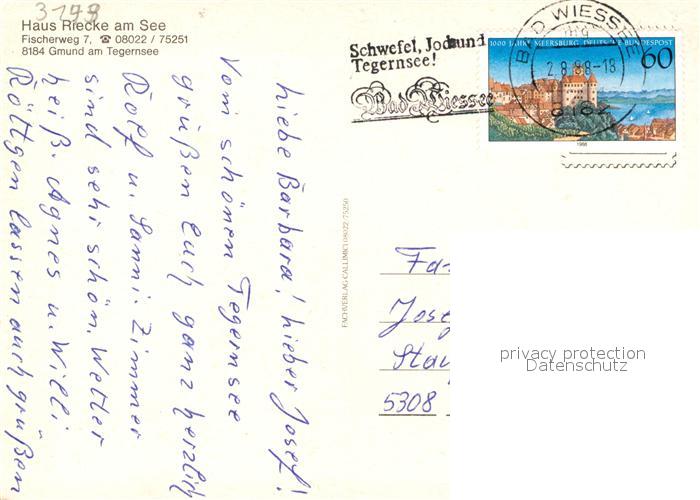 3199
Haus Riecke am See
Fischerweg 7, ☎ 08022 / 75251
8184 Gmund am Tegernsee
Schwefel, Jod und
Tegernsee!
Bad Wiessee
BAD WIESSEE
2.8.88-18
8182
1000 JAHRE MEERSBURG DEUTSCHE BUNDESPOST
60
1988
Liebe Barbara! Lieber Josef!
Vom schönen Tegernsee
grüßen Euch ganz herzlich
Rolf u. Sanni. Zimmer
sind sehr schön. Wetter
heiß. Agnes u. Willi
Röttgen lassen auch grüßen
FACHVERLAG CALLIMICI 08022/75250
Fa
Jose
Stau
5308
privacy protection
Datenschutz